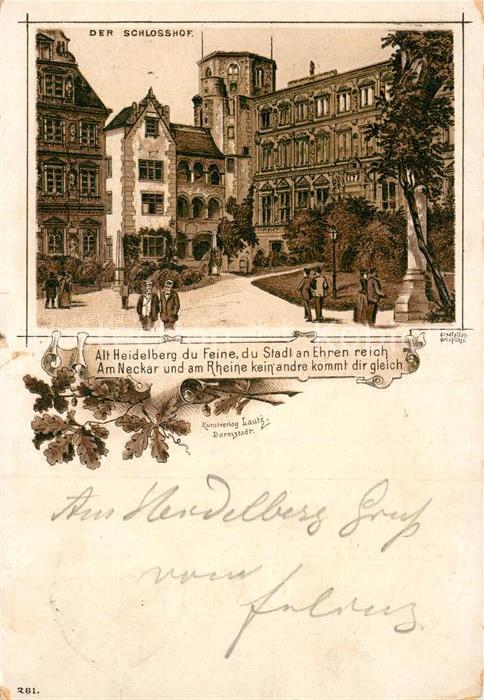 DER SCHLOSSHOF.
Gesetzlich
geschützt
Alt Heidelberg du Feine, du Stadt an Ehren reich
Am Neckar und am Rheine kein'andre kommt dir gleich
Kunstverlag Lautz,
Darmstadt.
Aus Heidelberg Gruß
vom
261.